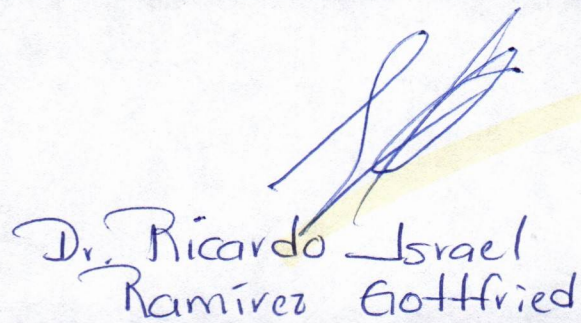 Dr. Ricardo Israel
Ramírez Gottfried